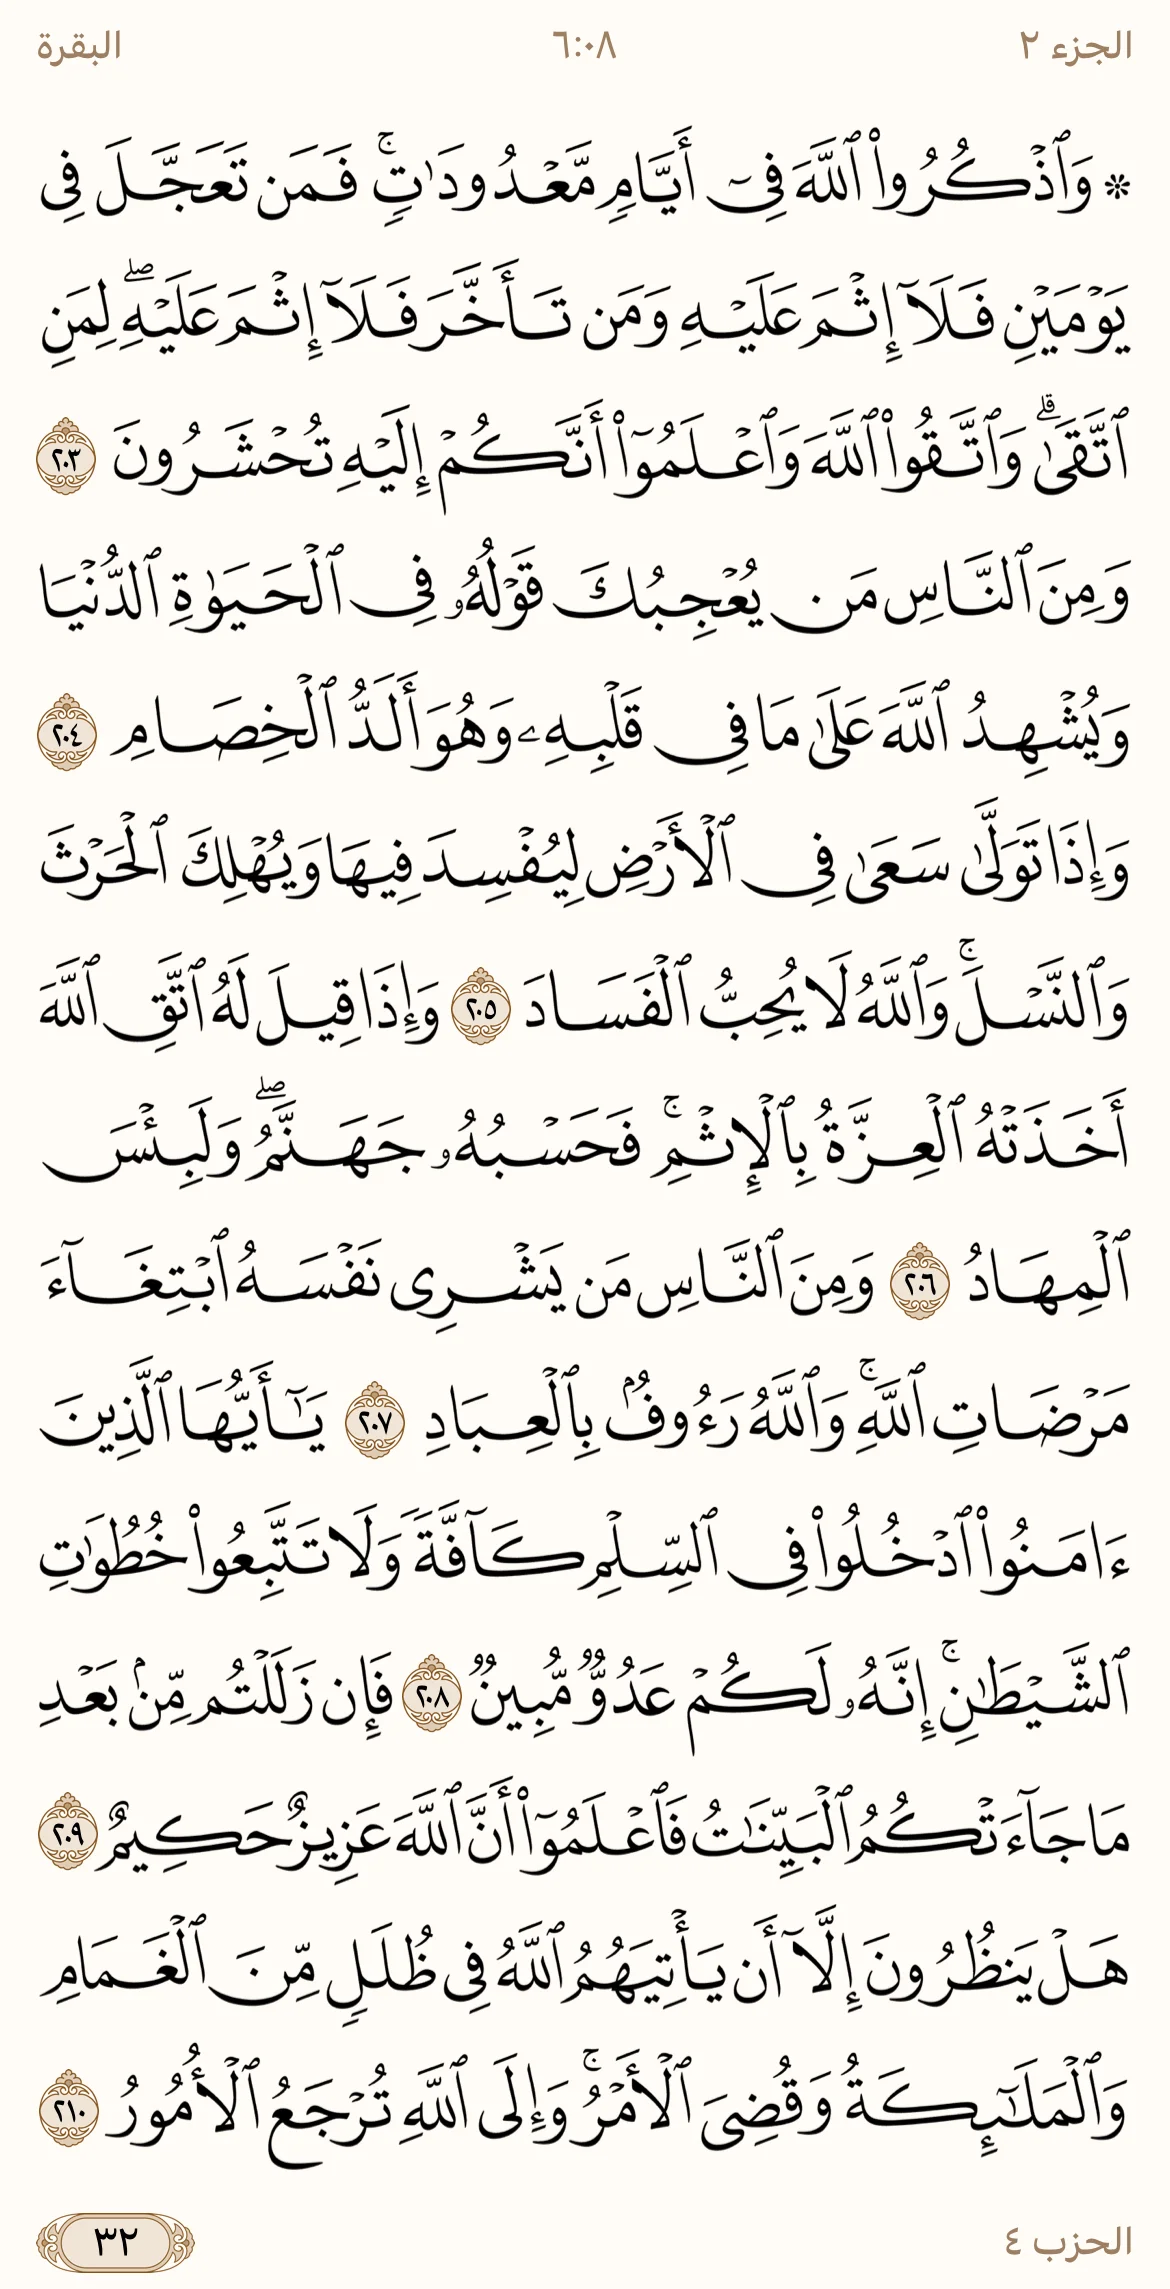 الجزء ٢
٦:٠٨
البقرة
۞ وَٱذْكُرُوا۟ ٱللَّهَ فِىٓ أَيَّامٍ مَّعْدُودَٰتٍ ۚ فَمَن تَعَجَّلَ فِى
يَوْمَيْنِ فَلَآ إِثْمَ عَلَيْهِ وَمَن تَأَخَّرَ فَلَآ إِثْمَ عَلَيْهِ ۖ لِمَنِ
ٱتَّقَىٰ ۗ وَٱتَّقُوا۟ ٱللَّهَ وَٱعْلَمُوٓا۟ أَنَّكُمْ إِلَيْهِ تُحْشَرُونَ ٢٠٣
وَمِنَ ٱلنَّاسِ مَن يُعْجِبُكَ قَوْلُهُۥ فِى ٱلْحَيَوٰةِ ٱلدُّنْيَا
وَيُشْهِدُ ٱللَّهَ عَلَىٰ مَا فِى قَلْبِهِۦ وَهُوَ أَلَدُّ ٱلْخِصَامِ ٢٠٤
وَإِذَا تَوَلَّىٰ سَعَىٰ فِى ٱلْأَرْضِ لِيُفْسِدَ فِيهَا وَيُهْلِكَ ٱلْحَرْثَ
وَٱلنَّسْلَ ۚ وَٱللَّهُ لَا يُحِبُّ ٱلْفَسَادَ ٢٠٥ وَإِذَا قِيلَ لَهُ ٱتَّقِ ٱللَّهَ
أَخَذَتْهُ ٱلْعِزَّةُ بِٱلْإِثْمِ ۚ فَحَسْبُهُۥ جَهَنَّمُ ۖ وَلَبِئْسَ
ٱلْمِهَادُ ٢٠٦ وَمِنَ ٱلنَّاسِ مَن يَشْرِى نَفْسَهُ ٱبْتِغَآءَ
مَرْضَاتِ ٱللَّهِ ۚ وَٱللَّهُ رَءُوفٌۢ بِٱلْعِبَادِ ٢٠٧ يَٰٓأَيُّهَا ٱلَّذِينَ
ءَامَنُوا۟ ٱدْخُلُوا۟ فِى ٱلسِّلْمِ كَآفَّةً وَلَا تَتَّبِعُوا۟ خُطُوَٰتِ
ٱلشَّيْطَٰنِ ۚ إِنَّهُۥ لَكُمْ عَدُوٌّ مُّبِينٌ ٢٠٨ فَإِن زَلَلْتُم مِّنۢ بَعْدِ
مَا جَآءَتْكُمُ ٱلْبَيِّنَٰتُ فَٱعْلَمُوٓا۟ أَنَّ ٱللَّهَ عَزِيزٌ حَكِيمٌ ٢٠٩
هَلْ يَنظُرُونَ إِلَّآ أَن يَأْتِيَهُمُ ٱللَّهُ فِى ظُلَلٍ مِّنَ ٱلْغَمَامِ
وَٱلْمَلَٰٓئِكَةُ وَقُضِىَ ٱلْأَمْرُ ۚ وَإِلَى ٱللَّهِ تُرْجَعُ ٱلْأُمُورُ ٢١٠
الحزب ٤
٣٢